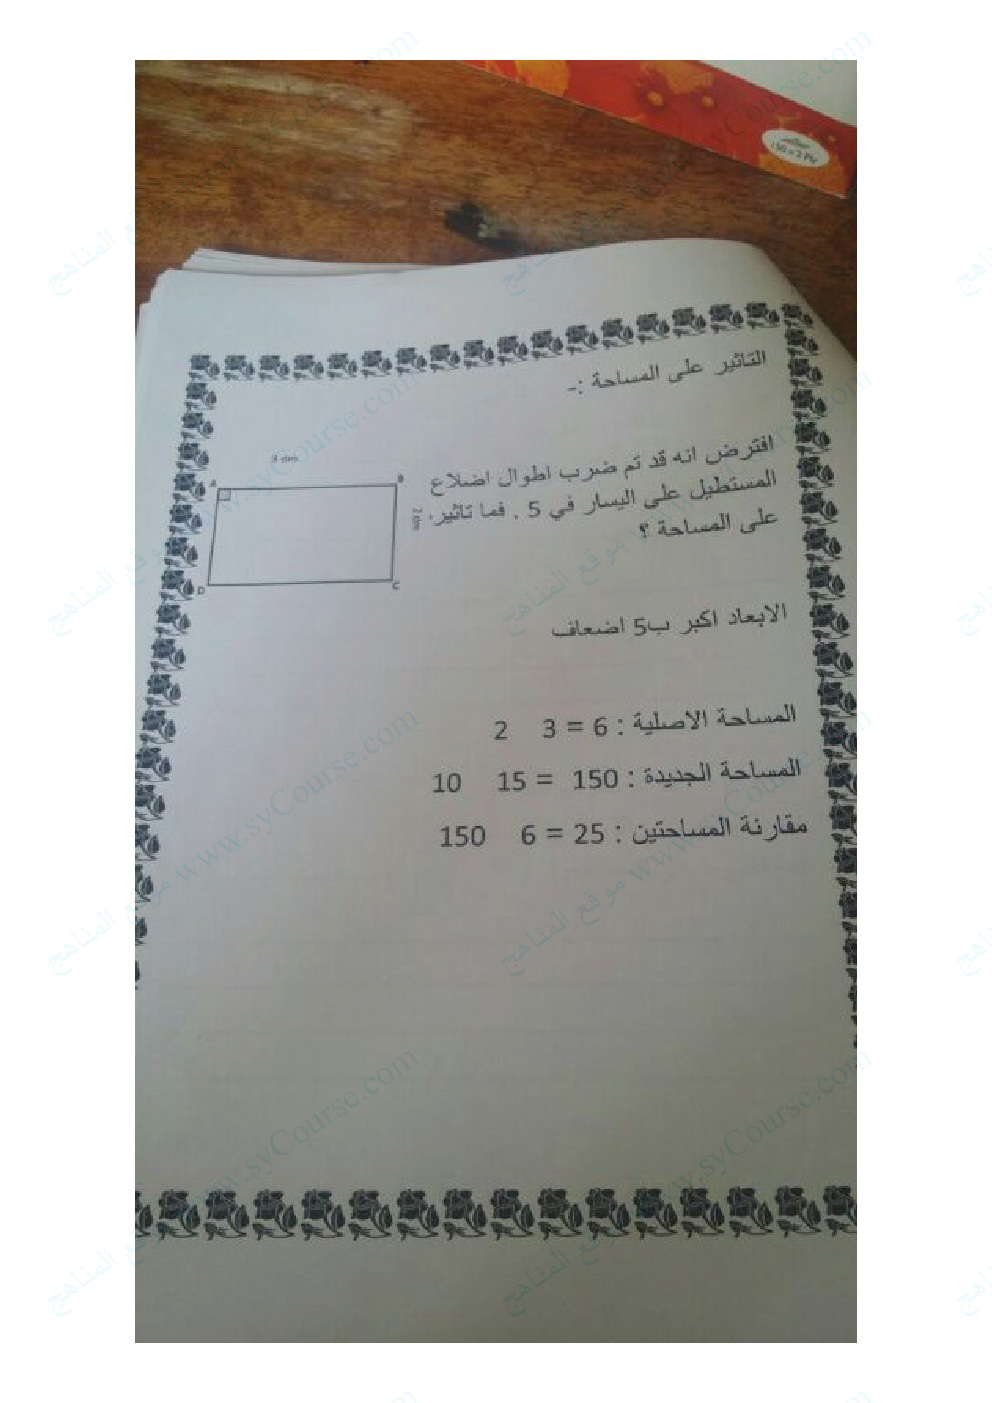 التاثير على المساحة :-
افترض انه قد تم ضرب اطوال اضلاع
المستطيل على اليسار في 5 . فما تاثير.
على المساحة ؟
3 dm
A
B
2 dm
D
C
الابعاد اكبر ب5 اضعاف
المساحة الاصلية : 6 = 3 2
المساحة الجديدة : 150 = 15 10
مقارنة المساحتين : 25 = 6 150
150 x 2 Ply
موقع المناهج www.syCourse.com